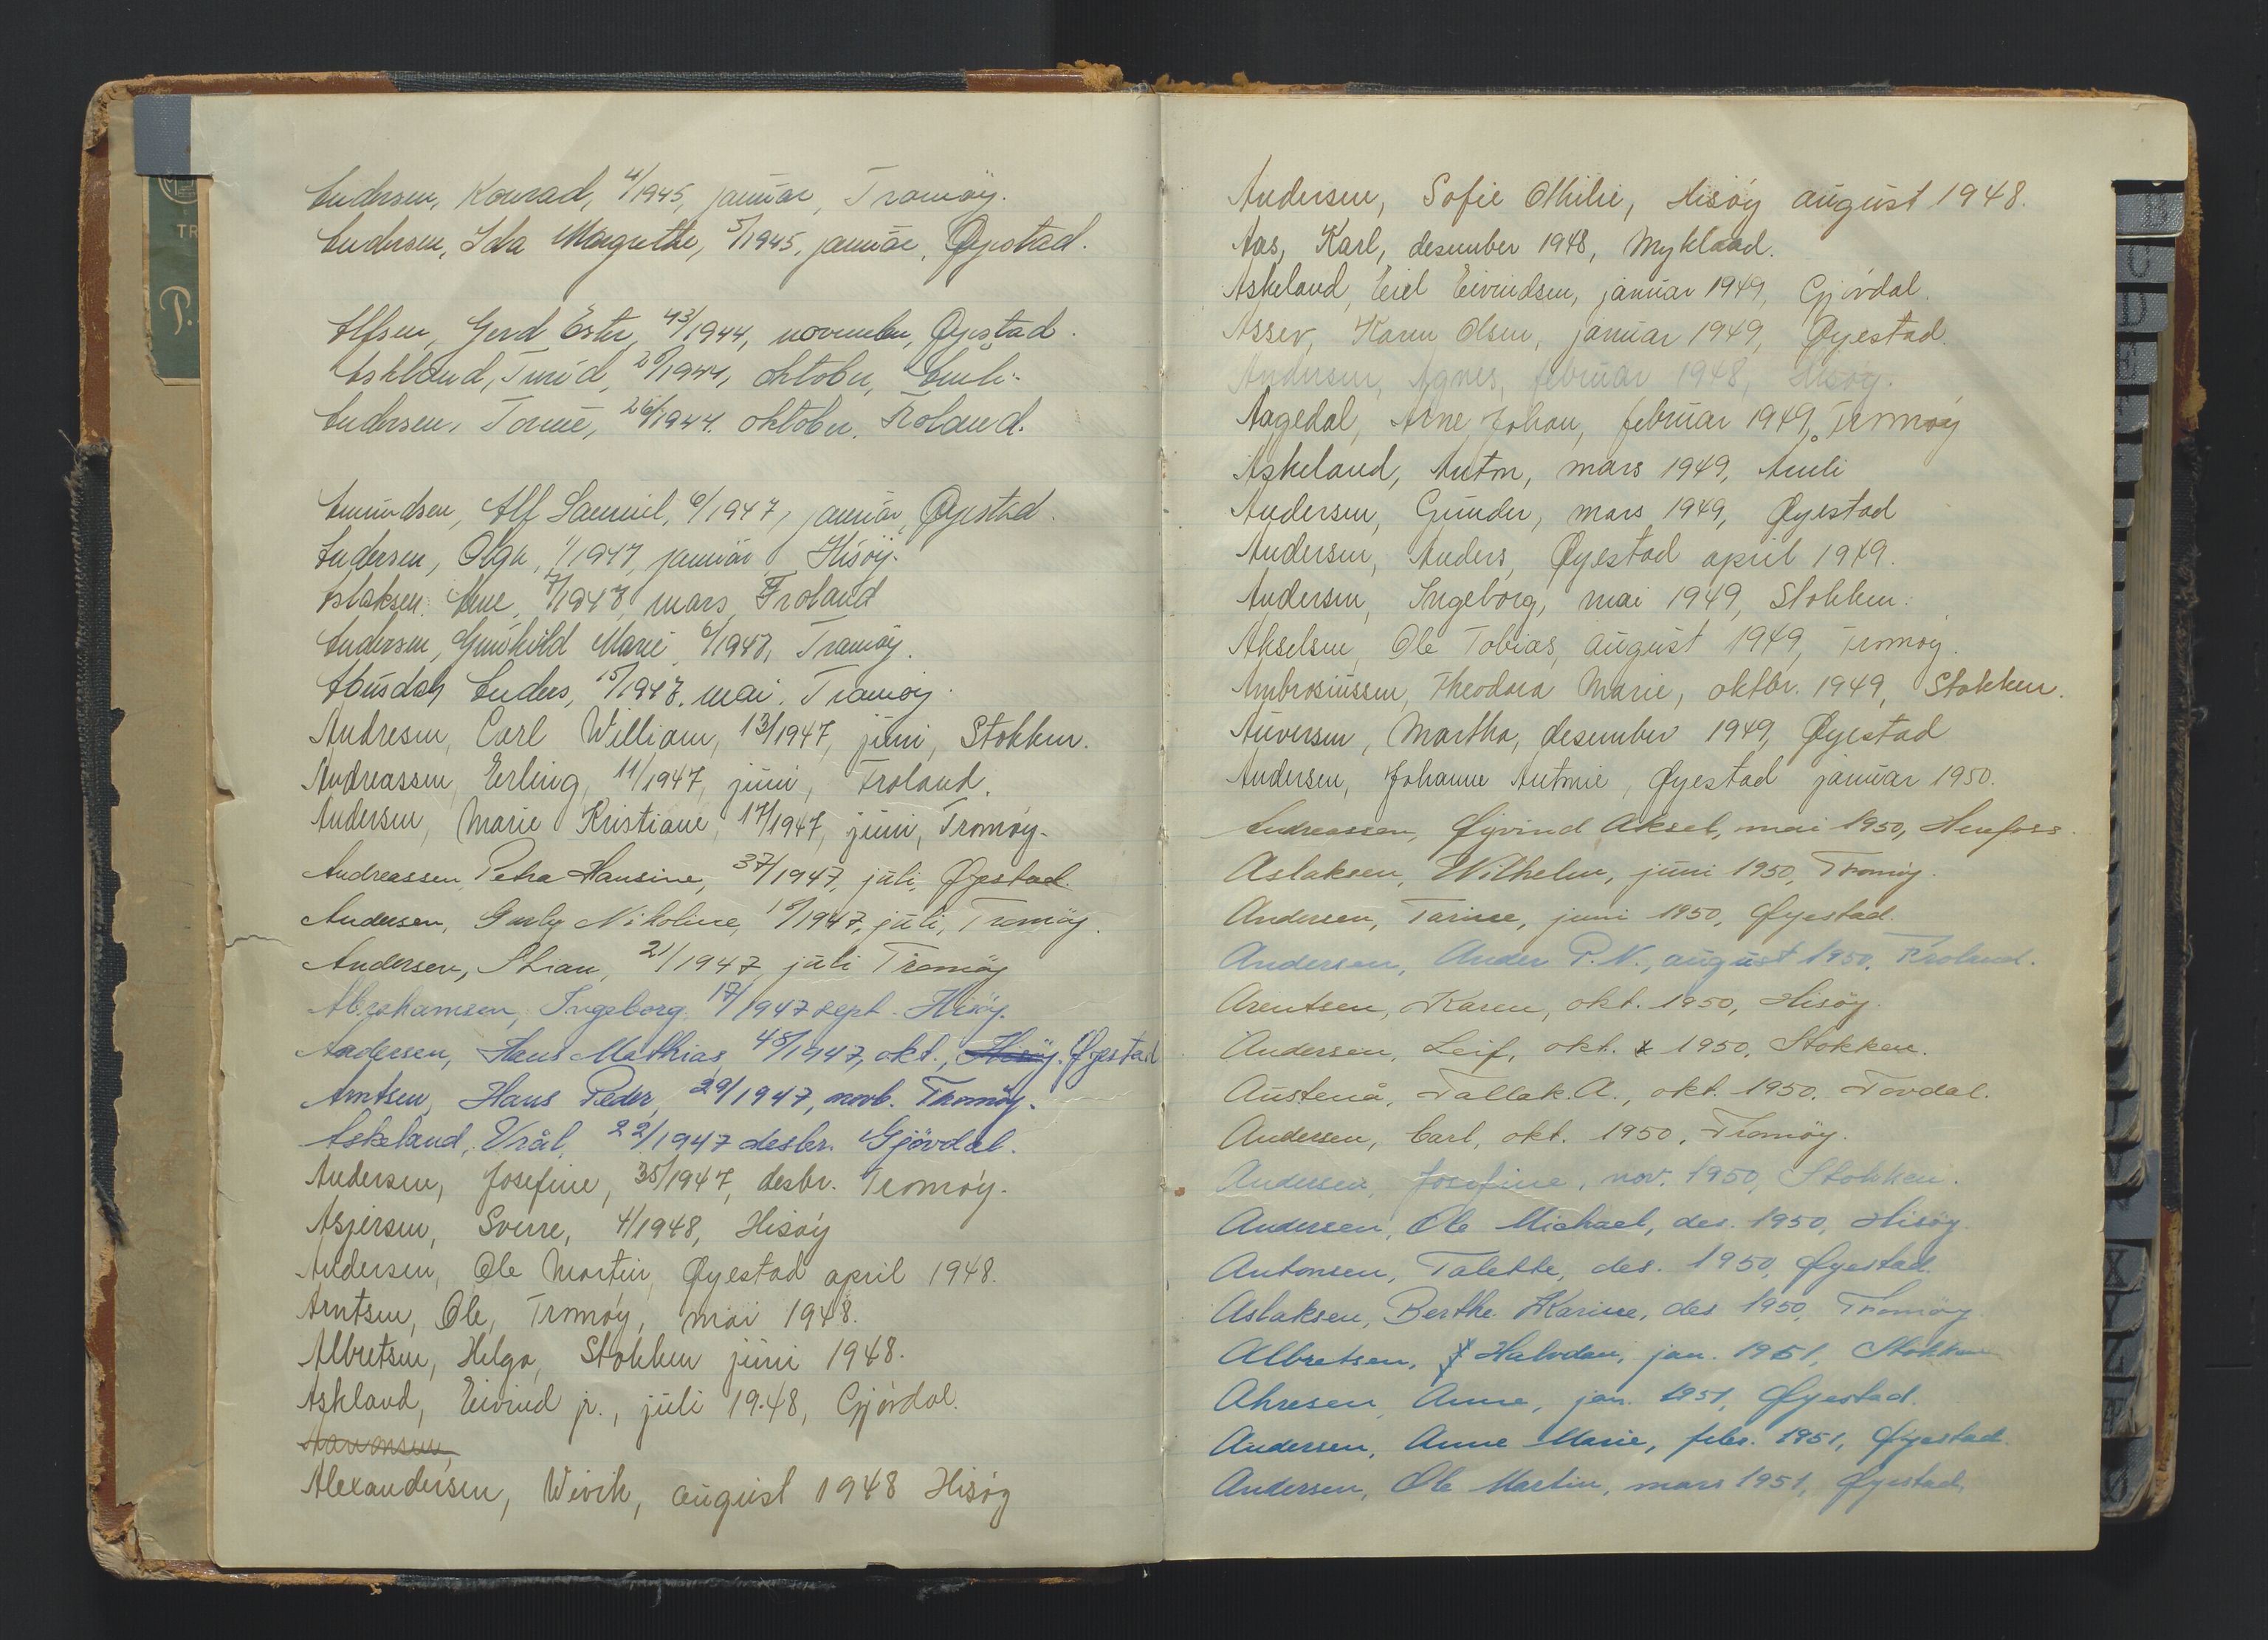 Andersen, Konrad, 4/1945, januar, Tromøy.
Andersen, Ida Margrethe, 5/1945, januar, Øyestad.
Alfsen, Gerd Ester, 43/1944, november, Øyestad.
Askland, Turid, 20/1944, oktober, Åmli.
Andersen, Tomine, 26/1944, oktober, Froland.
Amundsen, Alf Samuel, 6/1947, januar, Øyestad.
Andersen, Olga, 1/1947, januar, Hisøy.
Aslaksen, Anne, 7/1947, mars, Froland
Andersen, Gunhild Marie, 6/1947, Tromøy.
Abusdal, Anders, 15/1947, mai, Tromøy.
Andresen, Carl William, 13/1947, juni, Stokken.
Andreassen, Erling, 11/1947, juni, Froland.
Andersen, Marie Kristiane, 17/1947, juni, Tromøy.
Andreassen, Petra Hansine, 37/1947, juli, Øyestad.
Andersen, Nikoline, 1947, juli, Tromøy.
Andersen, Stian, 21/1947, juli Tromøy
Abrahamsen, Ingeborg, 17/1947 sept. Hisøy.
Andersen, Hans Mathias, 48/1947, okt., Hisøy. Øyestad
Arntsen, Hans Peder, 29/1947, novb. Tromøy.
Askeland, Vrål, 22/1947 desbr. Gjövdal.
Andersen, Josefine, 35/1947, desbr. Tromøy.
Asjersen, Sverre, 4/1948, Hisøy
Andersen, Ole Martin, Øyestad april 1948.
Arntsen, Ole, Tromøy, mai 1948.
Albretsen, Helga, Stokken juni 1948.
Askland, Eivind jr., juli 1948, Gjövdal.
Aaronsen,
Alexandersen, Wivik, august 1948 Hisøy
Andersen, Sofie Othilie, Hisøy august 1948.
Aas, Karl, desember 1948, Mykland.
Askeland, Eivindsen, januar 1949, Gjövdal.
Assev, Karen Olsen, januar 1949, Øyestad.
Andersen, Agnes, februar 1948, Hisøy.
Aagedal, Arne Johan, februar 1949, Tromøy
Askeland, Anton, mars 1949, Åmli
Andersen, Gunder, mars 1949, Øyestad
Andersen, Anders, Øyestad april 1949.
Andersen, Ingeborg, mai 1949, Stokken.
Akselsen, Ole Tobias, august 1949, Tromøy.
Ambrosiussen, Theodora Marie, oktbr. 1949, Stokken.
Auversen, Martha, desember 1949, Øyestad
Andersen, Johanne Antonie, Øyestad januar 1950.
Andreassen, Øyvind Aksel, mai 1950, Herefoss.
Aslaksen, Wilhelm, juni 1950, Tromøy.
Andersen, Tarine, juni 1950, Øyestad.
Andersen, Ander P.N., august 1950, Froland.
Arentsen, Karen, okt. 1950, Hisøy.
Andersen, Leif, okt. 1950, Stokken.
Austenå, Tallak A., okt. 1950, Tovdal.
Andersen, Carl, okt. 1950, Tromøy.
Andersen, Josefine, nov. 1950, Stokken.
Andersen, Ole Michael, des. 1950, Hisøy.
Antonsen, Talette, des. 1950, Øyestad.
Aslaksen, Berthe Karine, des 1950, Tromøy
Albretsen, Halvdan, jan. 1951, Stokken
Ahresen, Anne, jan. 1951, Øyestad.
Andersen, Anne Marie, febr. 1951, Øyestad.
Andersen, Ole Martin, mars 1951, Øyestad.